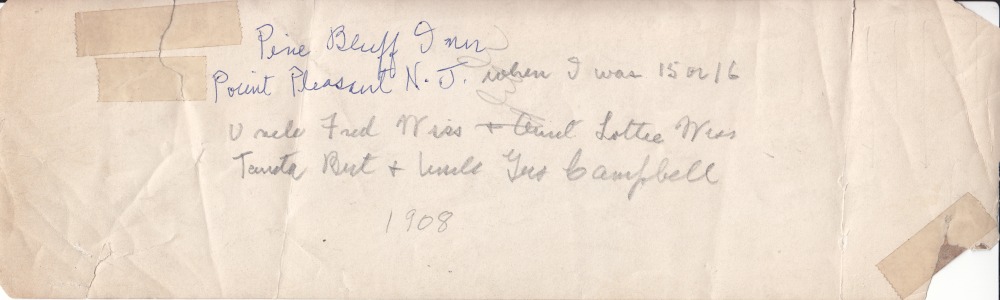 Pine Bluff Inn
Point Pleasant N. J. when I was 15 or 16
Uncle Fred Wiss + Aunt Lottie Wiss
Tanta Bert + Uncle Geo Campbell
1908